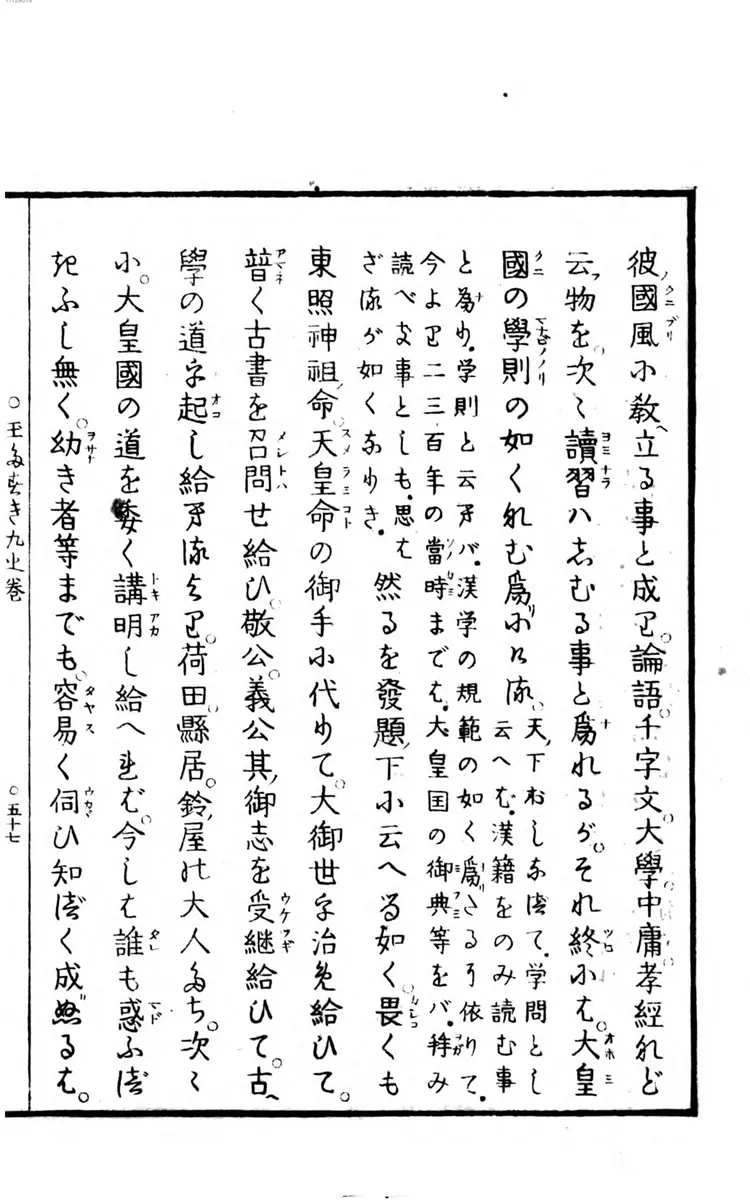 彼國風に教立る事と成り。論語。千字文。大學。中庸。孝經など
云物を。次々讀習はしむる事と爲れるが。それ終には。大皇
國の學則の如くなむ爲にける。
天下おしなべて。学問とし
云へば。漢籍をのみ読む事
と爲り。学則と云さへ。漢学の規範の如く爲さるに依りて。
今より二三百年の當時までは。大皇国の御典等をば。稀み
読べき事としも。思は
ざるが如くなりき。
然るを發題下に云へる如く。畏くも
東照神祖命。天皇命の御手に代りて。大御世を治め給ひて。
普く古書を召問せ給ひ。敬公。義公其御志を受継給ひて。古
學の道を起し給へるより。荷田縣居。鈴屋の大人たち。次々
に。大皇國の道を委く講明し給へれば。今しは誰も惑ふべ
きふし無く。幼き者等までも。容易く伺ひ知べく成ぬるは。
○玉たすき九之巻
○五十七